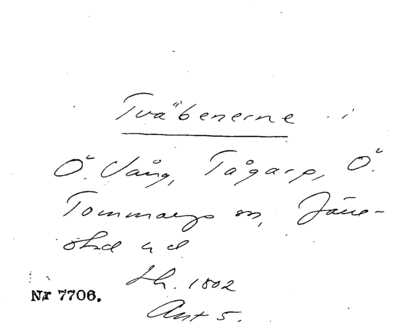 Tvåbenerne i
Ö. Vång, Tågarp, Ö.
Tommarps sn, Järre-
stad hd
Sk. 1802
Ant 5.
Nr 7706.